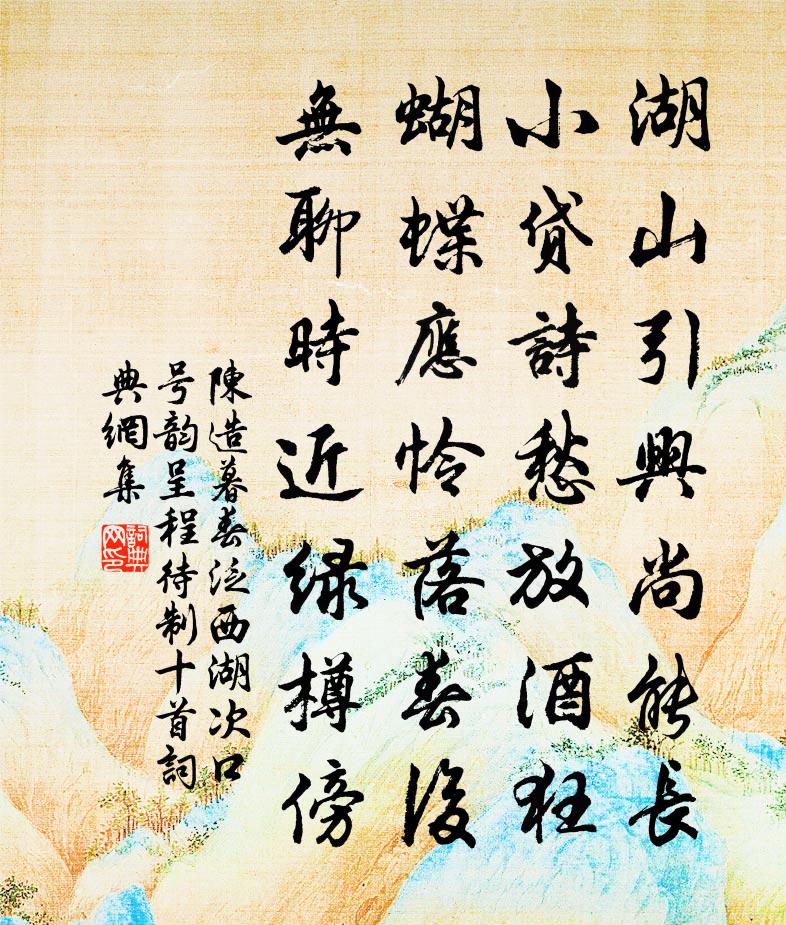 湖山引興尚能長
小貸詩愁放酒狂
蝴蝶應怜落春後
無聊時近緑樽傍
陳造暮春泛西湖次口
号韵呈程待制十首詞
典網集
詞典网印